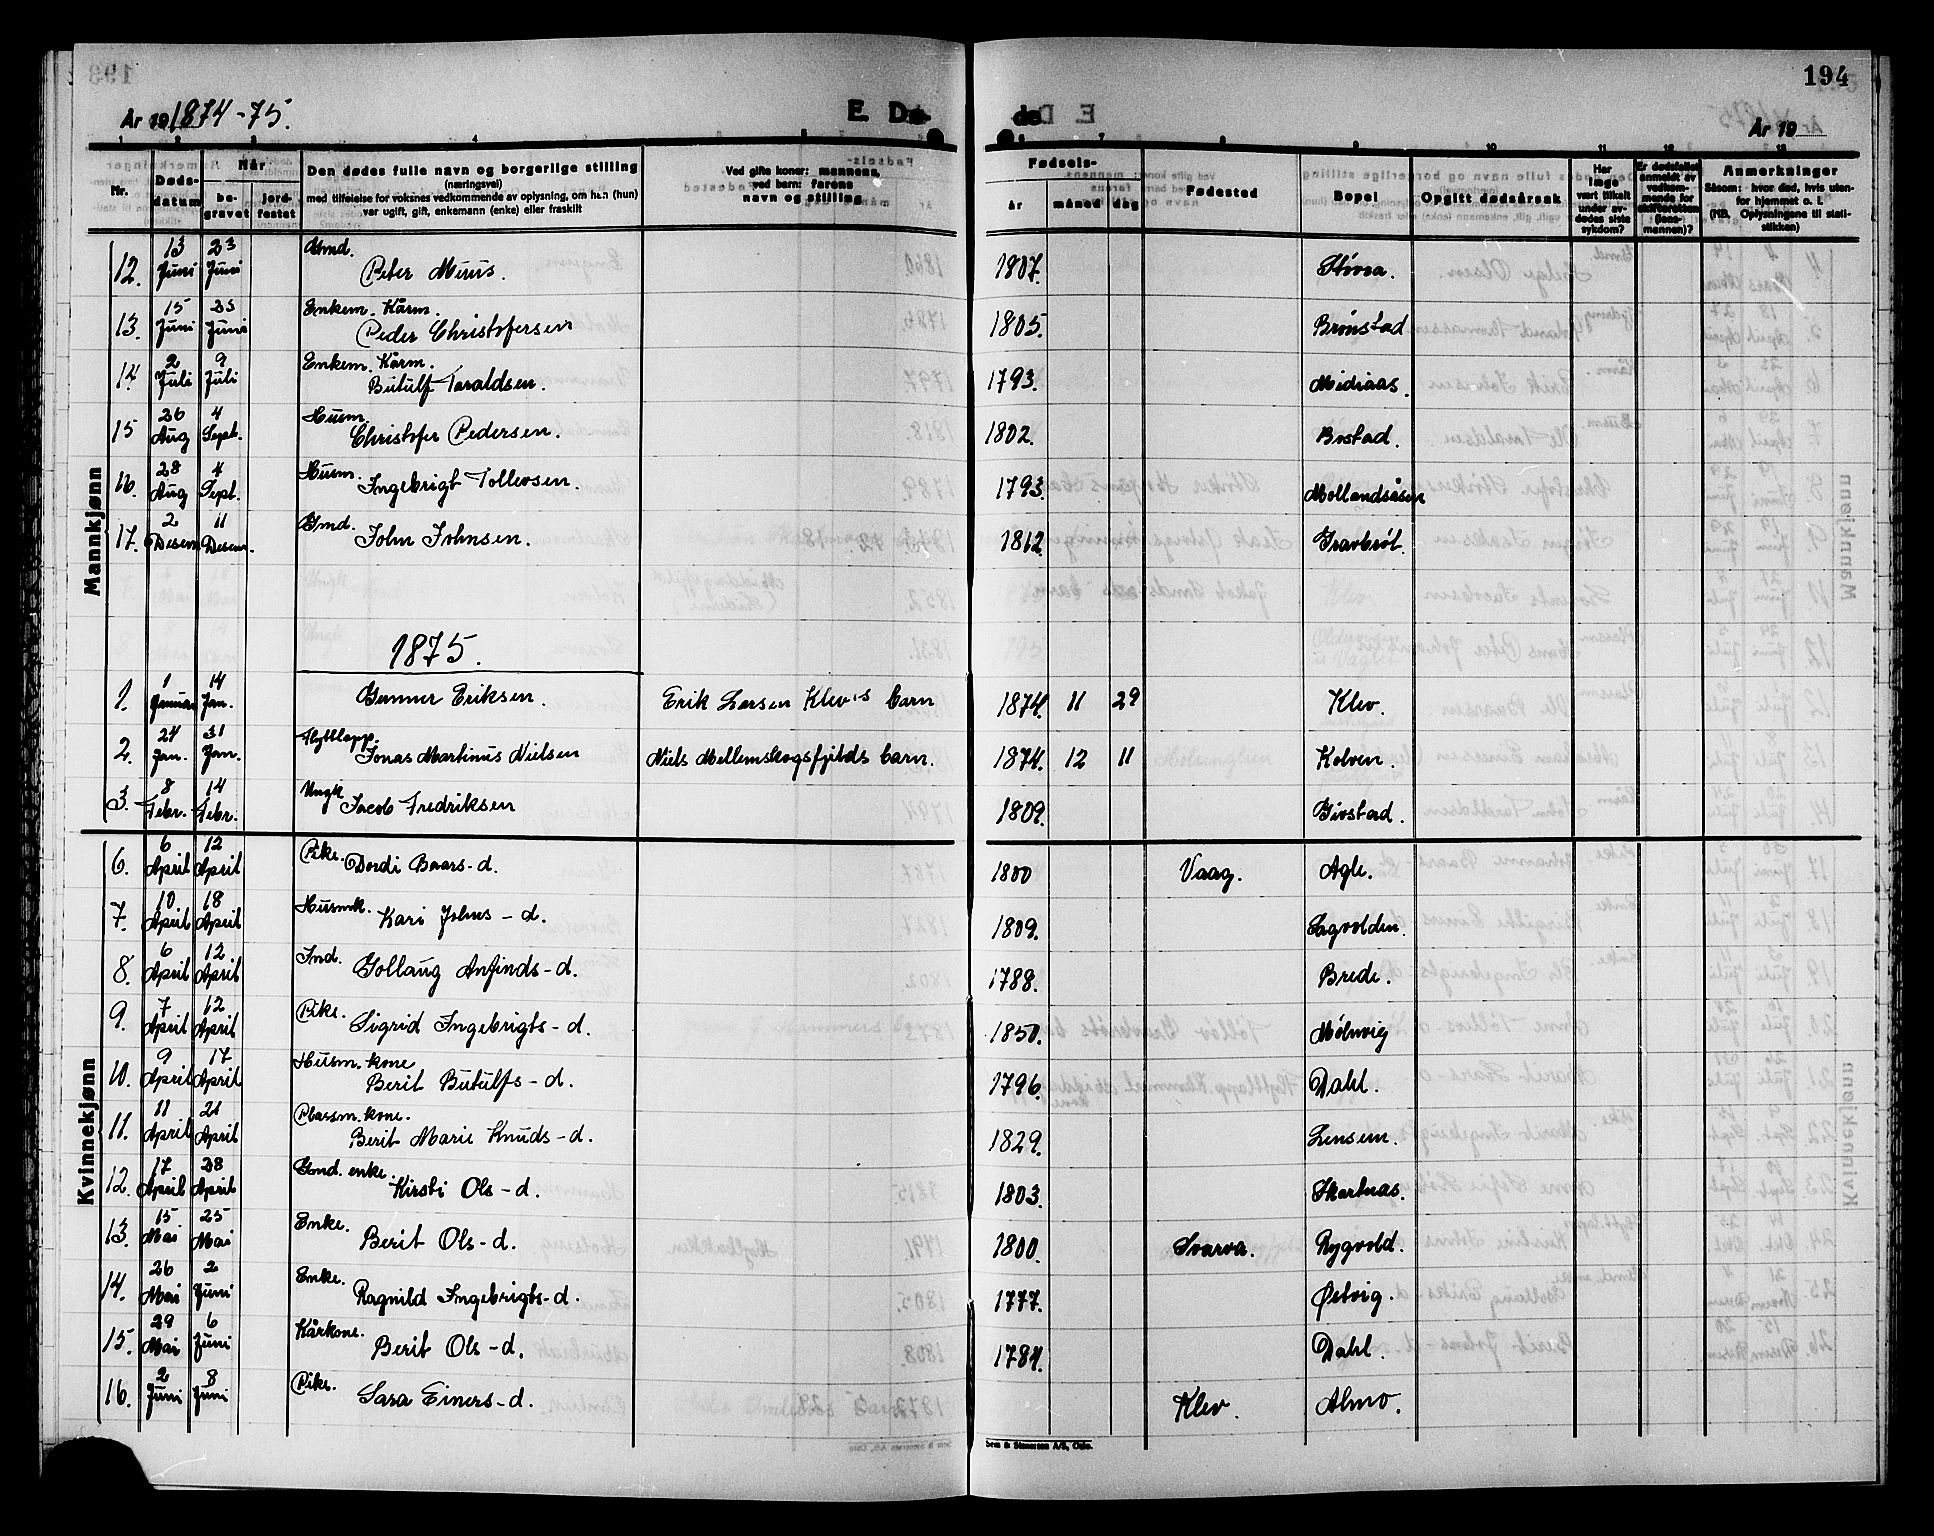 194
År 19 1874-75.
E. Dø-
de
År 19
1 2 3 4 5 6 7 8 9 10 11 12 13
Nr. Døds-datum Når be-gravet jord-festet Den dødes fulle navn og borgerlige stilling (næringsvei) med tilføielse for voksnes vedkommende av oplysning, om han (hun) var ugift, gift, enkemann (enke) eller fraskilt Ved gifte koner: mannens, ved barn: farens navn og stilling Fødsels- år måned dag Fødested Bopel Opgitt dødsårsak Har læge vært tilkalt under av-dødes siste sykdom? Er dødsfallet anmeldt av vedkom-mende for skifteretten (lens-mannen)? Anmerkninger Såsom: hvor død, hvis uten-for hjemmet o. l. (NB. Oplysningene til stati-stikken)
Mannkjønn
12. 13 Juni 23 Juni Gmd. Peter Muus. 1807. Støvra.
13. 15 Juni 23 Juni Enkem. Kårm. Peder Christofersen 1805. Brønstad
14. 2 Juli 9 Juli Enkem. Kårm. Butulf Taraldsen. 1793. Midiaas.
15 26 Aug 4 Sept. Husm. Christofer Pedersen. 1802. Bostad.
16. 28 Aug 4 Sept. Husm. Ingebrigt Tollevsen. 1793. Mollandsåsen
17. 2 Desem 11 Desem. Gmd. John Johnsen. 1812. Gravbrøt.
1875.
1. 1 Januar 14 Jan. Gunner Eriksen. Erik Larsen Klev's barn 1874. 11 29 Klev.
2. 24 Jan. 31 Jan. Flyttlapp. Jonas Martinus Nielsen Niels Mellemskogsfjelds barn. 1874. 12 11 Kolven.
3. 8 Febr. 14 Febr. Ungk Jacob Fredriksen 1809. Givstad.
Kvinnekjønn
6. 6 April 12 April Pike. Dordi Baars-d. 1800 Vaag. Agle.
7. 10 April 18 April Husmk. Kari Johns-d. 1809. Lagvolden.
8. 6 April 12 April Ind. Gollaug Anfinds-d. 1788. Brede.
9. 7 April 12 April Pike. Sigrid Ingebrigts-d. 1850. Mølnvig
10. 9 April 17 April Husm. kone Berit Butulfs-d. 1796. Dahl.
11. 11 April 21 April Plassm. kone. Berit Marie Knuds-d. 1829. Lensem.
12. 17 April 28 April Gmd. enke. Kirsti Ols-d. 1803. Skartnas.
13. 15 Mai 25 Mai Enke. Berit Ols-d. 1800. Svarva. Rygvold.
14. 26 Mai 2 Juni Enke. Ragnild Ingebrigts-d. 1777. Østvig.
15. 29 Mai 6 Juni Kårkone. Berit Ols-d. 1784. Dahl.
16. 2 Juni 8 Juni Pike. Sara Einers-d. Klev. Almo.